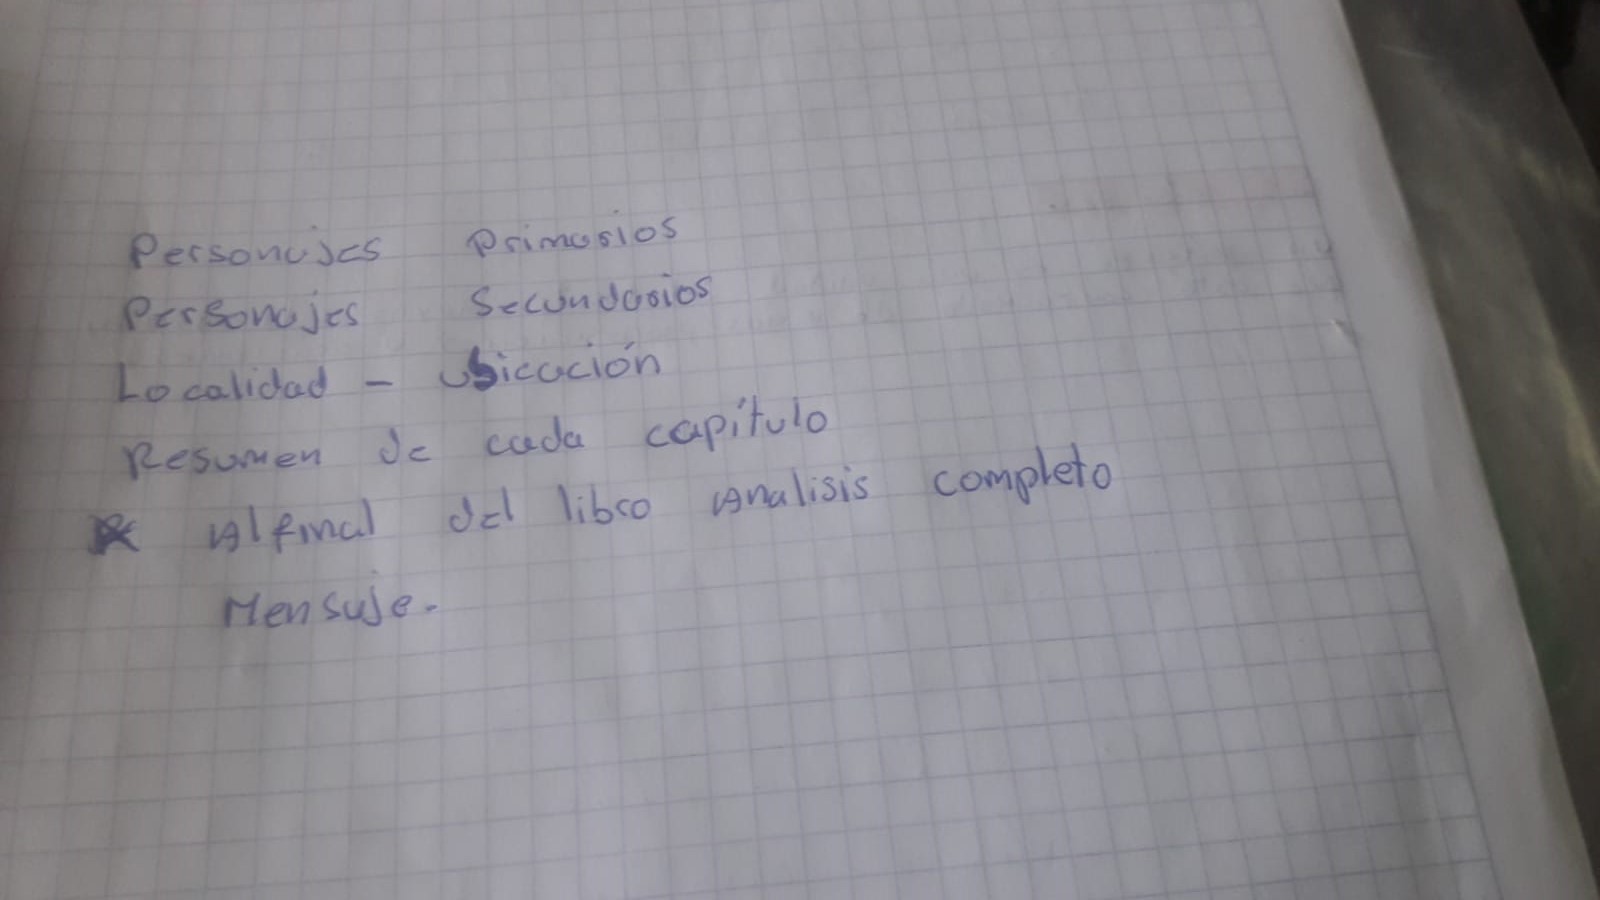 Personajes Primarios
Personajes Secundarios
Localidad - ubicación
Resumen de cada capítulo
Al final del libro Analisis completo
Mensaje.